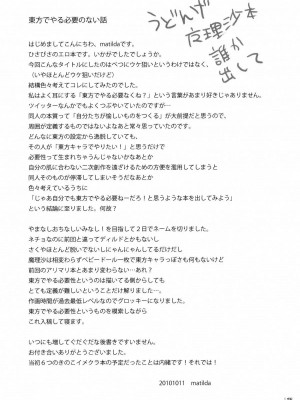 東方でやる必要のない話
うどんげ
魔理沙本
誰か
出して
はじめましてこんにちわ、matildaです。
ひさびさのエロ本です。いかがでしたでしょうか。
今回こんなタイトルにしたのはべつにウケ狙いというわけではなく、
(いやほとんどウケ狙いだけど)
結構色々考えてコレにしてみたのでした。
私はよく耳にする「東方でやる必要なくね？」という言葉があまり好きじゃありません。
ツイッターなんかでもよくつぶやいていたのですが…
同人の本質って「自分たちが愉しいものをつくる」が大前提だと思うので、
周囲が定義するものではないよなあと常々思っていたのです。
どんなに東方の設定から逸脱していても、
その人が「東方キャラでやりたい！」と思うだけで
必要性って生まれちゃうんじゃないかなあとか
自分の肌に合わない二次創作を遠ざけるための方便を濫用してしまうと
同人そのものが停滞してしまいそうだなあとか
色々考えているうちに
「じゃあ自分でも東方でやる必要ねーだろ！と思うような本を出してみよう」
という結論に至りました。何故？
やまなしおちなしいみなし！を目指して２日でネームを切りました。
ネチョなのに前回と違ってディルドとかもないし
さくやほとんど脱いでないしにゃんにゃんしてるだけだし
魔理沙は相変わらずベビードール一枚で東方キャラっぽさも何もないけど
前回のアリマリ本とあまり変わらない…あれ？
東方でやる必要性というのは描いてる側からしても
とても定義が難しいということだけ解りました…。
作画時間が過去最低レベルなのでグロッキーになりました。
東方でやる必要性というものを模索しながら
これ入稿して寝ます。
いつにも増してぐだぐだな後書きですいません。
お付き合いありがとうございました。
当初６つのきのこイメクラ本の予定だったことは内緒です！それでは！
20101011　matilda